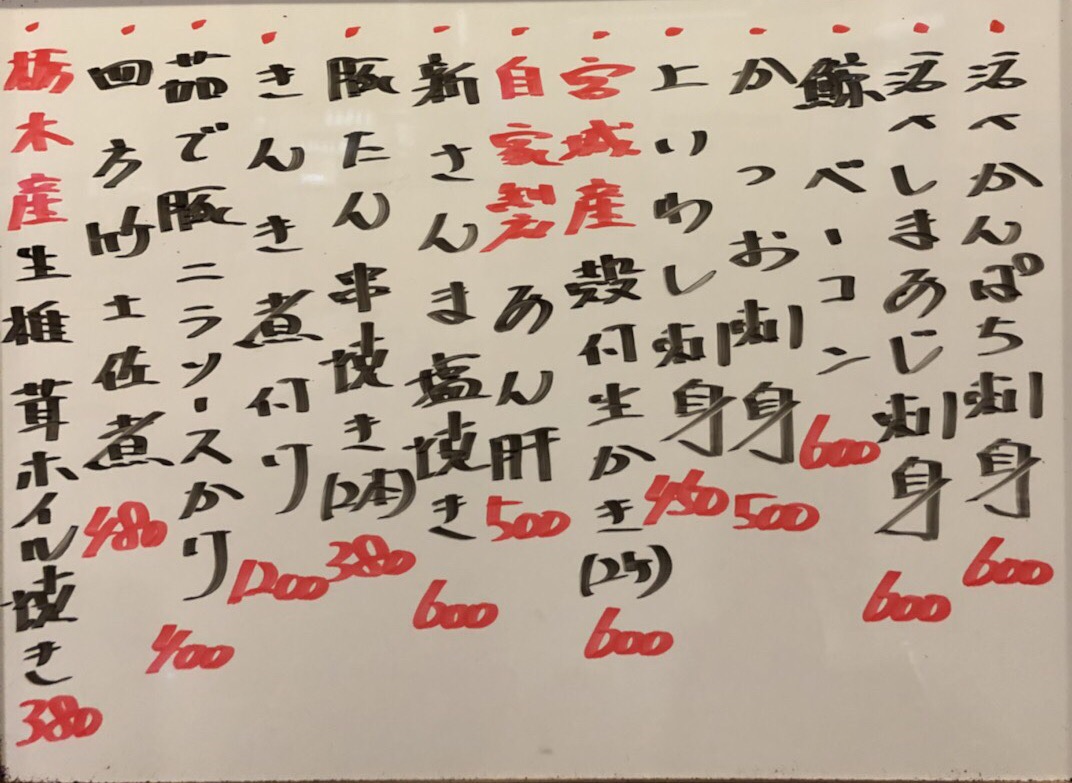 活〆かんぱち刺身 600
活〆しまあじ刺身 600
鯨ベーコン 600
かつお刺身 500
上いわし刺身 450
宮城産殻付生かき(2ヶ) 600
自家製あん肝 500
新さんま塩焼き 600
豚たん串焼き(2本) 380
きんき煮付り 1200
茹で豚ニラソースかけ 400
四方竹土佐煮 480
栃木産生椎茸ホイル焼き 380